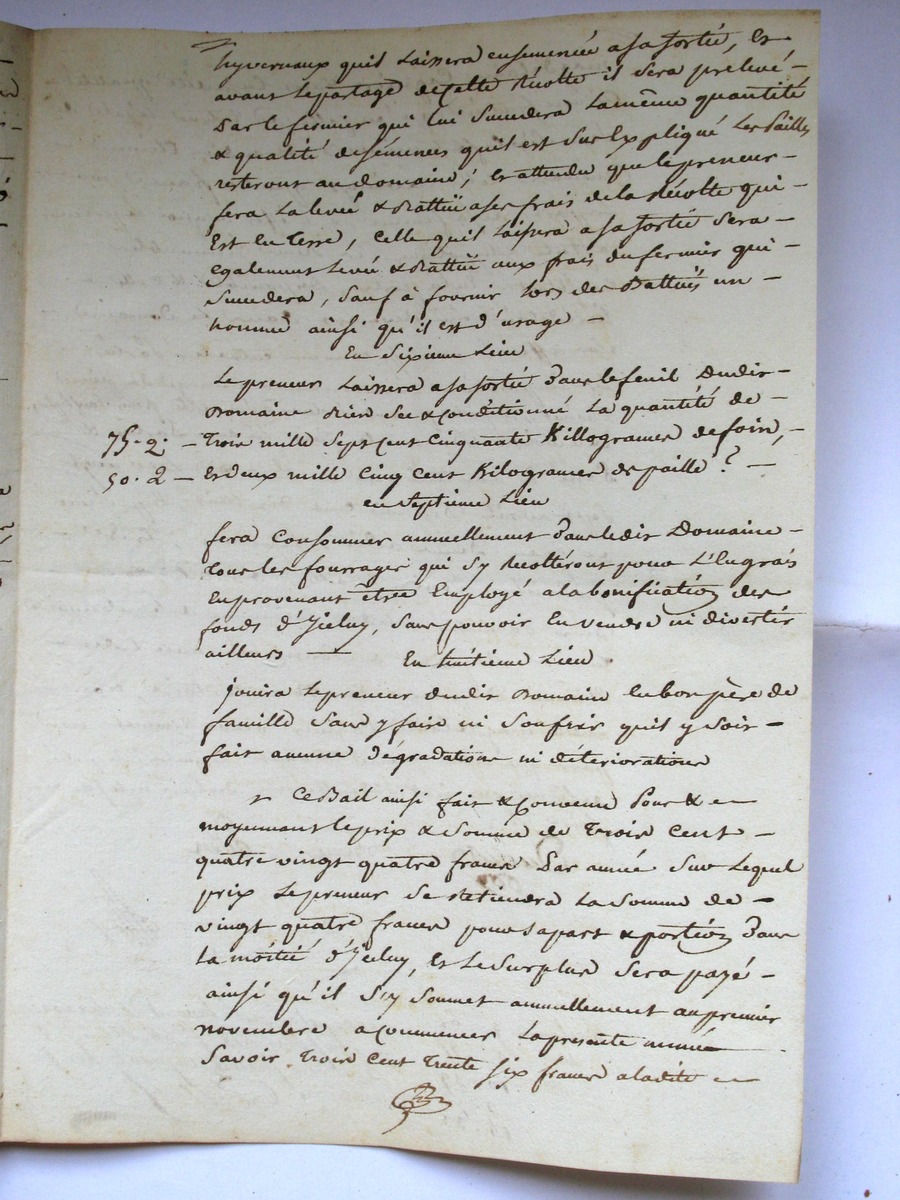 hyvernaux quil Laissera ensemencée a sa sortie, Et
avant Le partage de cette récolte il sera prelevé -
Par le fermier qui lui succedera La même quantité
& qualité de sémences quil est sus Expliqué Les Pailles
resteront au domaine; Et attendu que le preneur -
fera La levée & Battüe a ses frais de la Récolte qui -
Est En Terre, Celle quil Laissera a sa sortie sera -
Egalement Levée & Battüe aux frais du fermier qui -
succedera, sauf à fournir Lors des Battües un -
homme ainsi qu'il est d'usage -
En sixieme Lieu
Le preneur Laissera a sa sortie Dans le feuil Dudit -
Domaine Bien sec & conditionné La quantité de -
75 - 2 - Trois mille sept Cent Cinquante Killogrames de foin, -
50 - 2 - Et deux mille Cinq Cent Kilogrames de paille ? -
en septieme Lieu
fera Consommer annuellement Dans ledit Domaine -
Tous les fourrages qui s'y Recolterons pour L'Engrais
En provenant être Employé a la bonification des
fonds d'Jceluy, sans pouvoir En vendre ni divertir
ailleurs - En huitieme Lieu
Jouira Le preneur dudit Domaine En bon père de
famille sans y faire ni soufrir quil y soit -
fait aucune dégradations ni déteriorations
Ce Bail ainsi fait & Convenu Pour & -
moyennant le prix & somme de Trois Cent -
quatre vingt quatre francs Par année sur Lequel
prix Le preneur se Retiendra La somme de -
vingt quatre francs pour sa part & portion Dans
La moitié d'Jceluy, Et Le surplus sera payé -
ainsi qu'il s'y soumet annuellement au premier
novembre a Commencer La presente année
savoir Trois Cent Trente six francs a ladite -